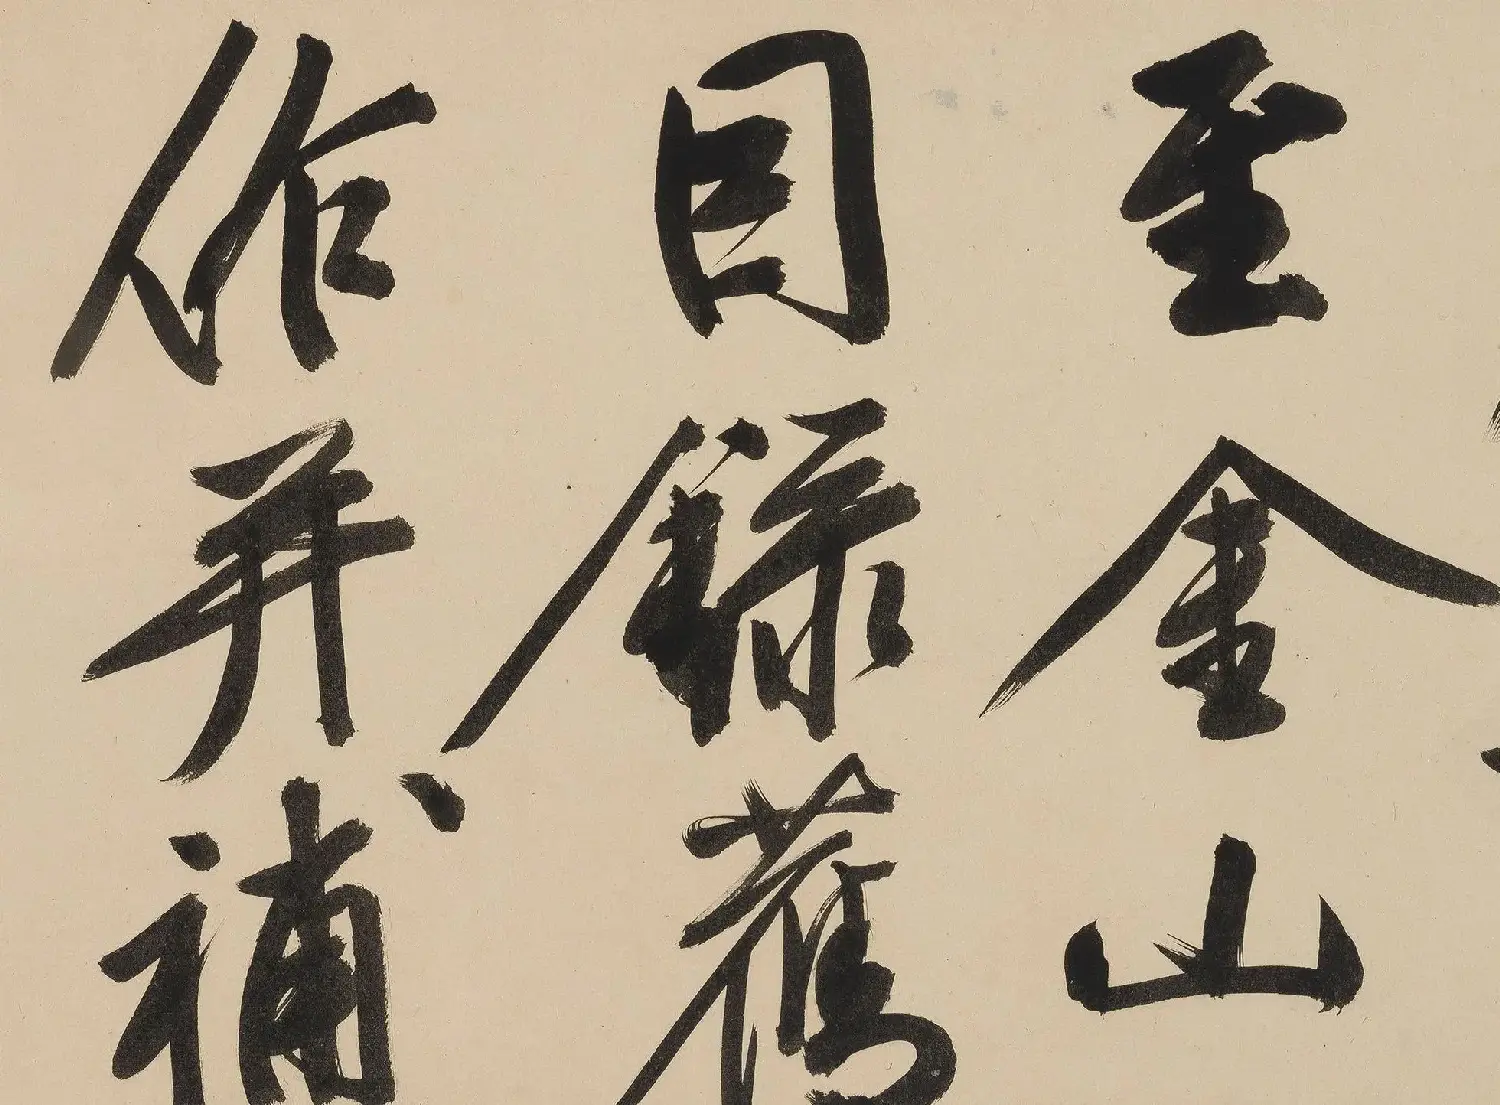 至金山
目錄舊
作并補